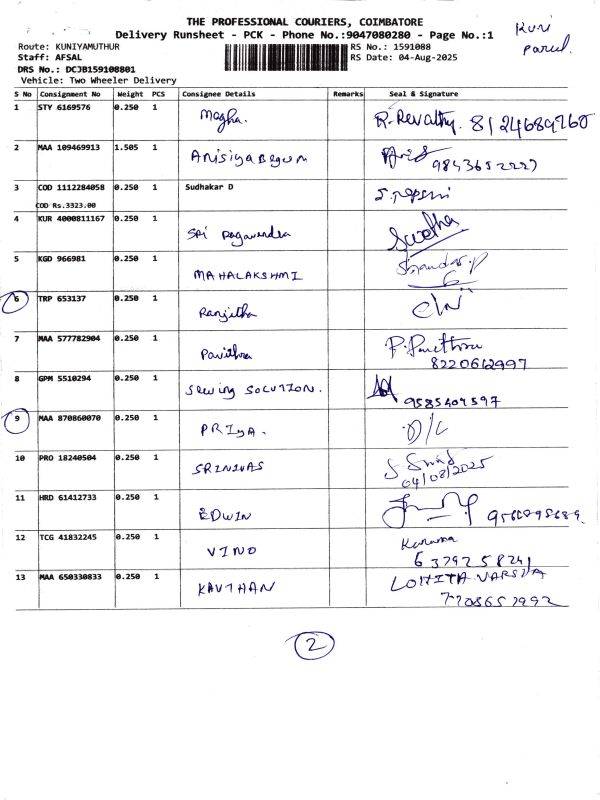 THE PROFESSIONAL COURIERS, COIMBATORE
Delivery Runsheet - PCK - Phone No.:9047080280 - Page No.:1
Kuni
parcel.
Route: KUNIYAMUTHUR
RS No.: 1591088
Staff: AFSAL
RS Date: 04-Aug-2025
DRS No.: DCJB159108801
Vehicle: Two Wheeler Delivery
S No Consignment No Weight PCS Consignee Details Remarks Seal & Signature
1 STY 6169576 0.250 1 Magha. R. Revathy. 8124689760
2 MAA 109469913 1.505 1 Anisiya Begum 9843652227
3 COD 1112284058 0.250 1 Sudhakar D
COD Rs.3323.00
4 KUR 4000811167 0.250 1 SRi Ragavendra Swetha
5 KGD 966981 0.250 1 MAHALAKSHMI
6 TRP 653137 0.250 1 Ranjitha
7 MAA 577782904 0.250 1 Pavithra
8220612997
8 GPM 5510294 0.250 1 Sewing SOLUTION. 9585409597
9 MAA 870860070 0.250 1 PRIyA. D/C
10 PRO 18240504 0.250 1 SRINIVAS
04/08/2025
11 HRD 61412733 0.250 1 EDWIN
12 TCG 41832245 0.250 1 VINO
6379258241
13 MAA 650330833 0.250 1 KAVTHAN LOHITA VARSHA
7708657992
2